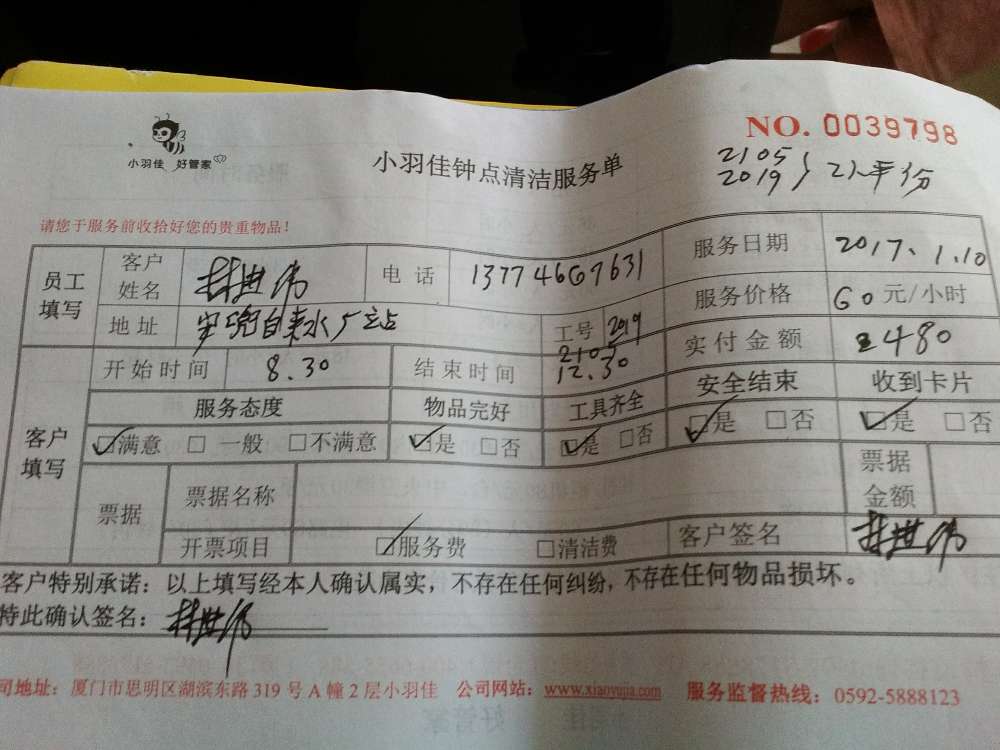 小羽佳 好管家
NO. 0039798
小羽佳钟点清洁服务单
2105
2019
请您于服务前收拾好您的贵重物品！
员工填写 客户姓名 林世伟 电话 13774667631 服务日期 2017.1.10
地址 自来水厂 工号 2019 2105 服务价格 60元/小时
开始时间 8.30 结束时间 12.30 实付金额 480
客户填写 服务态度 物品完好 工具齐全 安全结束 收到卡片
☑满意 □一般 □不满意 ☑是 □否 ☑是 □否 ☑是 □否 ☑是 □否
票据 票据名称 票据金额
开票项目 ☑服务费 □清洁费 客户签名 林世伟
客户特别承诺：以上填写经本人确认属实，不存在任何纠纷，不存在任何物品损坏。
特此确认签名：林世伟
司地址：厦门市思明区湖滨东路319号A幢2层小羽佳 公司网站：www.xiaoyujia.com 服务监督热线：0592-5888123